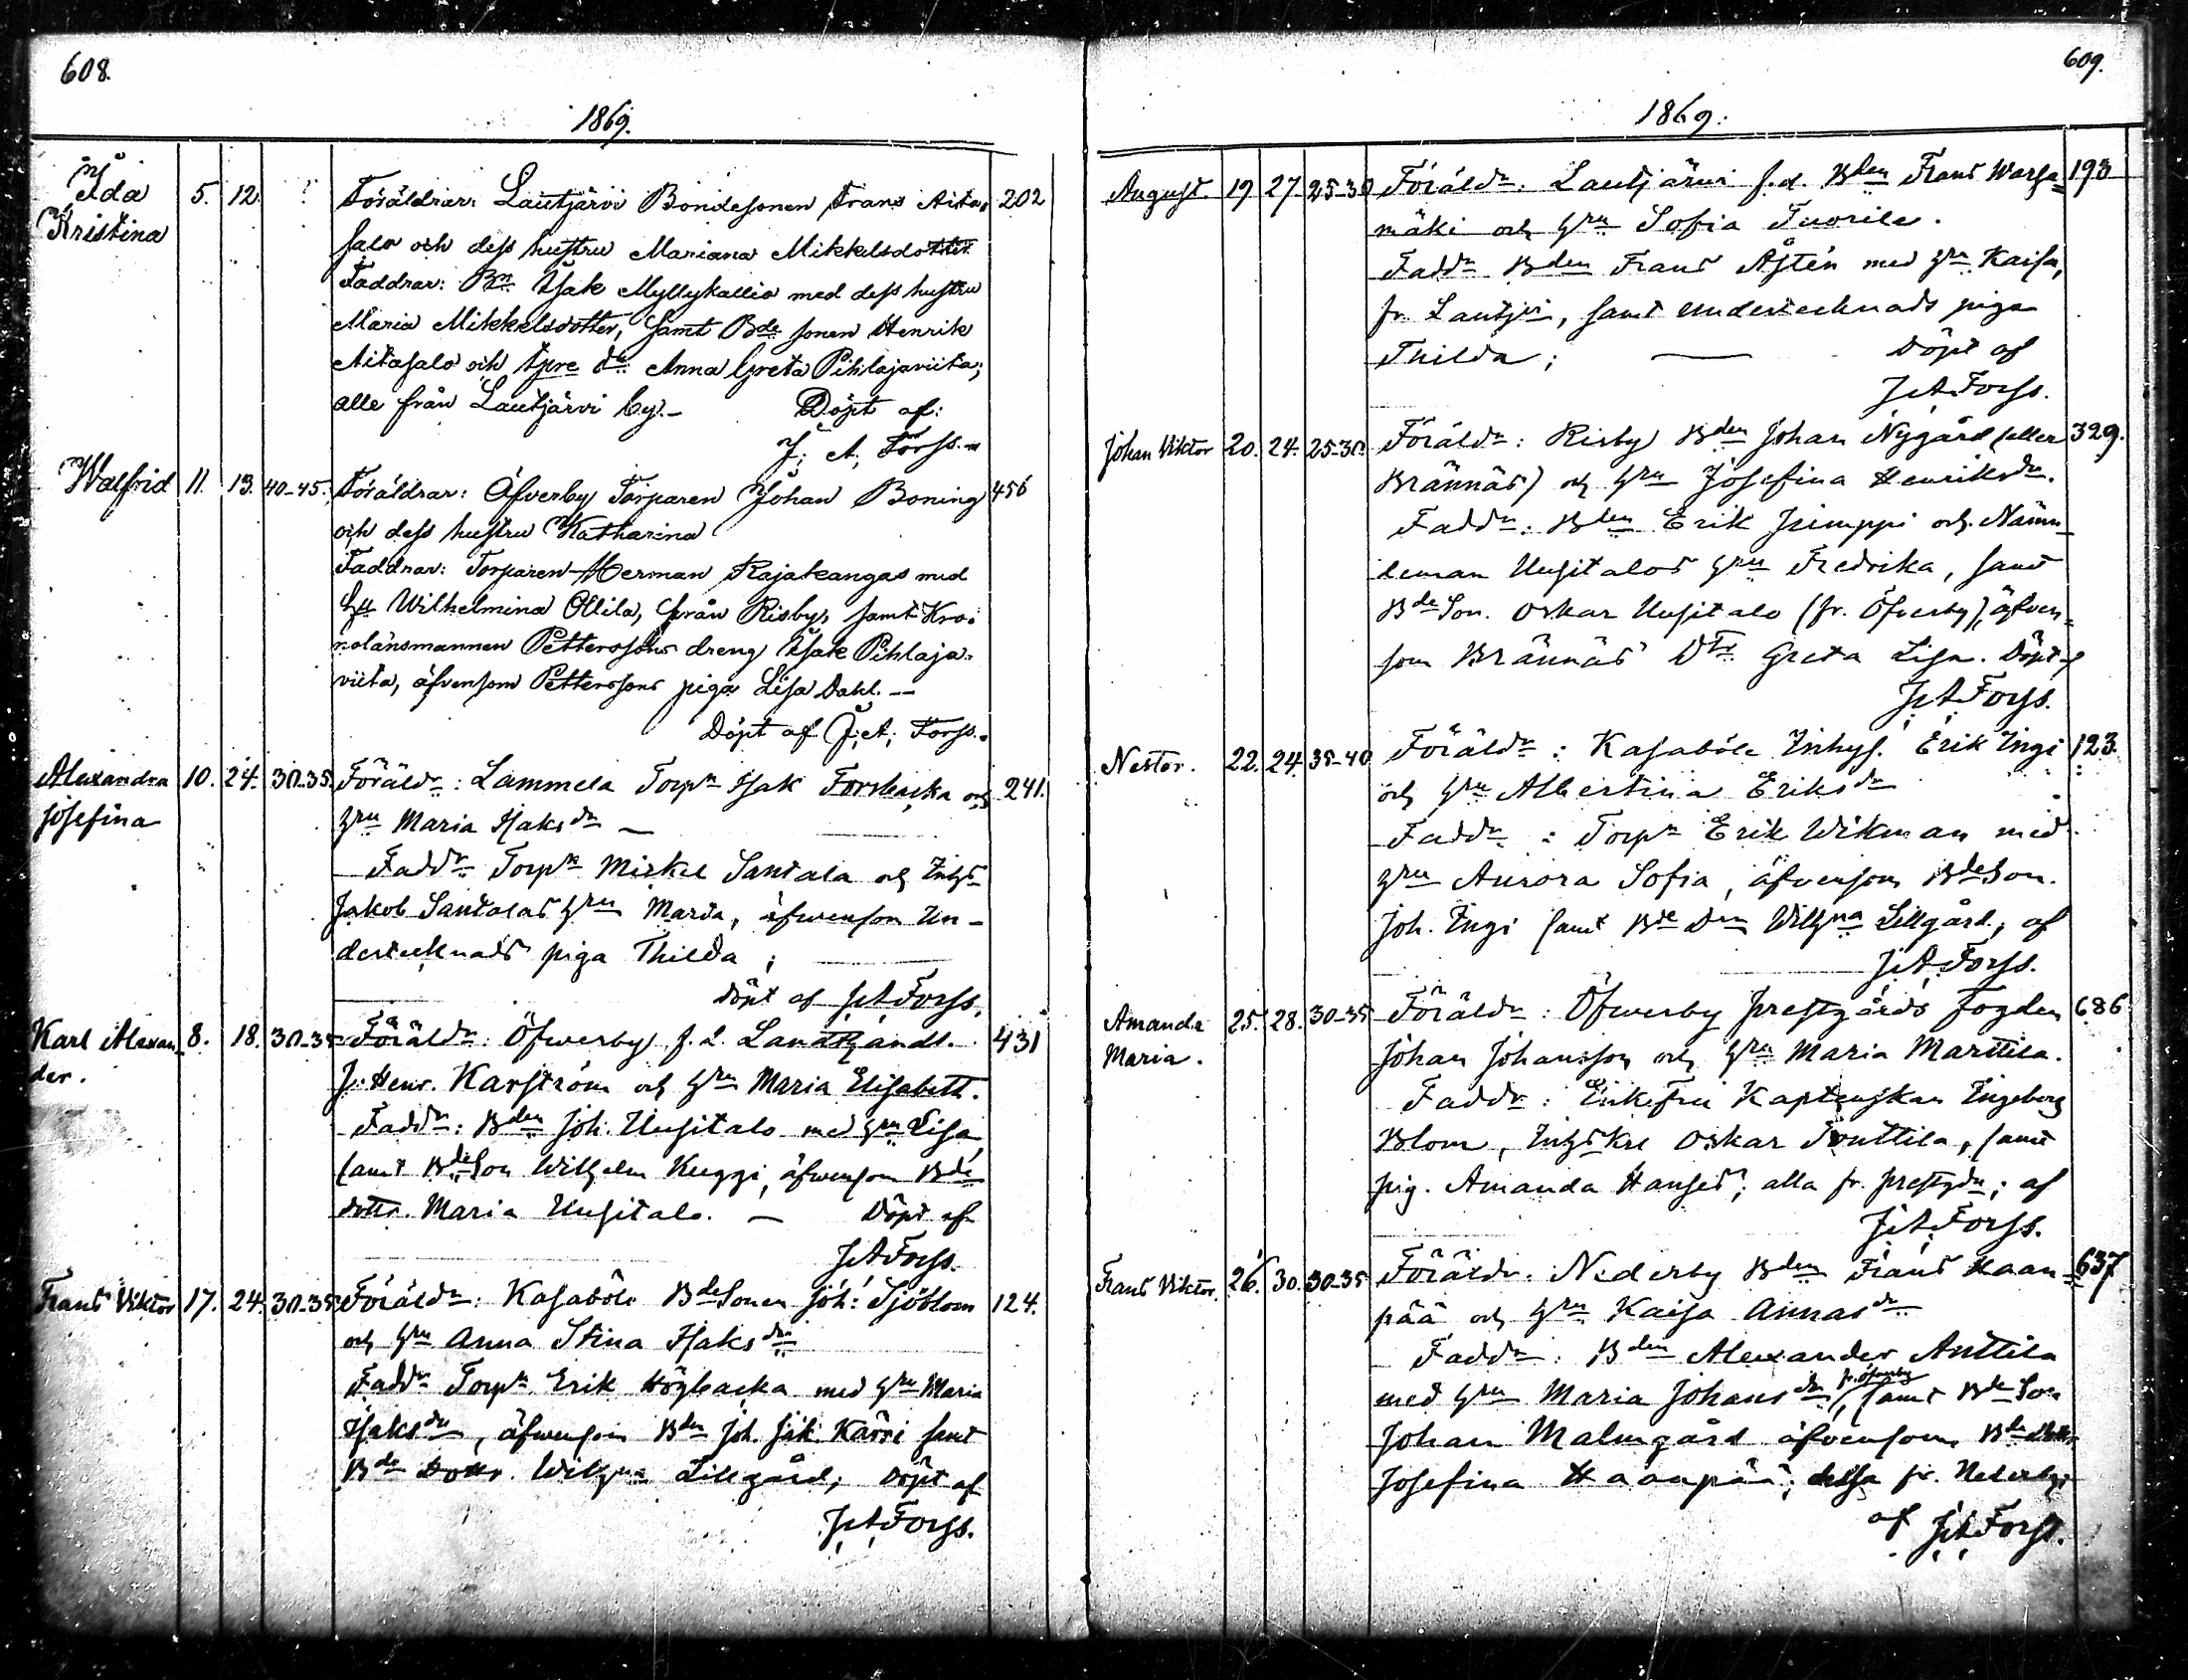 608.
1869.
Ida 5. 12. ? Föräldrar: Lautjärvi Bondesonen Frans Aita- 202
Kristina salo och dess hustru Mariana Mikkelsdotter
Faddrar: Bn Isak Myllykallio med dess hustru
Maria Mikkelsdotter, samt Bde sonen Henrik
Aitasalo och tpre dr Anna Greta Pihlajaviita;
alle från Lautjärvi by.- Döpt af:
J. A. Forss.
Walfrid 11. 13. 40-45. Föräldrar: Öfverby Torparen Johan Boning 456
och dess hustru Katharina
Faddrar: Torparen Herman Rajakangas med
hu Wilhelmina Ollila, från Risby, samt Kro-
nolänsmannen Petterssons dreng Isak Pihlaja-
viita, äfvensom Petterssons piga Lisa Dahl. —
Döpt af J. A. Forss.
Alexandra 10. 24. 30-35. Föräldr: Lammela Torpn Isak Forsbacka och 241.
Josefina hru Maria Isaksdr —
Faddr Torpn Mickel Santala och Inhs
Jakob Santalas hru Maria, äfvensom Un-
dertecknads piga Thilda ;
döpt af J.A. Forss.
Karl Alexan- 8. 18. 30-35 Föräldr: Öfwerby f.d. Landthandl. 431
der. J: Henr. Karström och hru Maria Elisabeth.
Faddr: Bden Joh. Uusitalo med hru Lisa
samt BdeSon Wilhelm Kuggi, äfvensom Bde
dottr. Maria Uusitalo. — Döpt af
J.A. Forss.
Frans Viktor 17. 24. 30-35 Föräldr: Kasaböle BdeSonen Joh: Sjöblom 124.
och hru Anna Stina Isaksdr
Faddr Torpn Erik Högbacka med hru Maria
Isaksdr, äfvensom Bden Joh. Jak. Karri samt
Bde Dottr. Wilhma Lillgård; döpt af
J.A. Forss.
609.
1869.
August. 19 27. 25-30 Föräldr: Lautjärvi f.d. Bden Frans Warsa- 193
mäki och hru Sofia Tuorila.
Faddr Bden Frans Åstén med hru Kaisa,
fr. Lautjvi, samt undertecknads piga
Thilda ; — Döpt af
J.A. Forss.
Johan Viktor 20. 24. 25-30. Föräldr: Risby Bden Johan Nygård (eller 329.
Brännäs) och hru Josefina Henriksdr.
Faddr: Bden Erik Jsimppi och Nämn-
deman Uusitalos hru Fredrika, samt
BdeSon. Oskar Uusitalo (fr. Öfverby), äfven-
som Brännäs Dtr Greta Lisa. Döpt af
J.A. Forss.
Nestor. 22. 24. 35-40 Föräldr: Kasaböle Inhys. Erik Ingi 123.
och hru Albertina Eriksdr
Faddr: Torpn Erik Wikman med
hru Aurora Sofia, äfvensom BdeSon.
Joh. Ingi samt Bde Drn Wilhna Lillgård; af
J.A. Forss.
Amanda 25. 28. 30-35 Föräldr: Öfwerby prestgårds fogden 686
Maria. Johan Johansson och hru Maria Marttila.
Faddr: Enkefru Kaptenskan Ingeborg
Blom, Inhskre Oskar Penttila, samt
pig. Amanda Hansdr; alla fr. prestgdn; af
J.A. Forss.
Frans Viktor. 26. 30. 30-35 Föräldr. Nederby Bden Frans Haan- 637
pää och hru Kaisa Annasdr
Faddr: Bden Alexander Anttila
med hru Maria Johansdr, fr. Öfverby samt BdeSon
Johan Malmgård äfvensom Bde Dottr
Josefina Haanpää; dessa fr. Nederby.
af J.A. Forss.